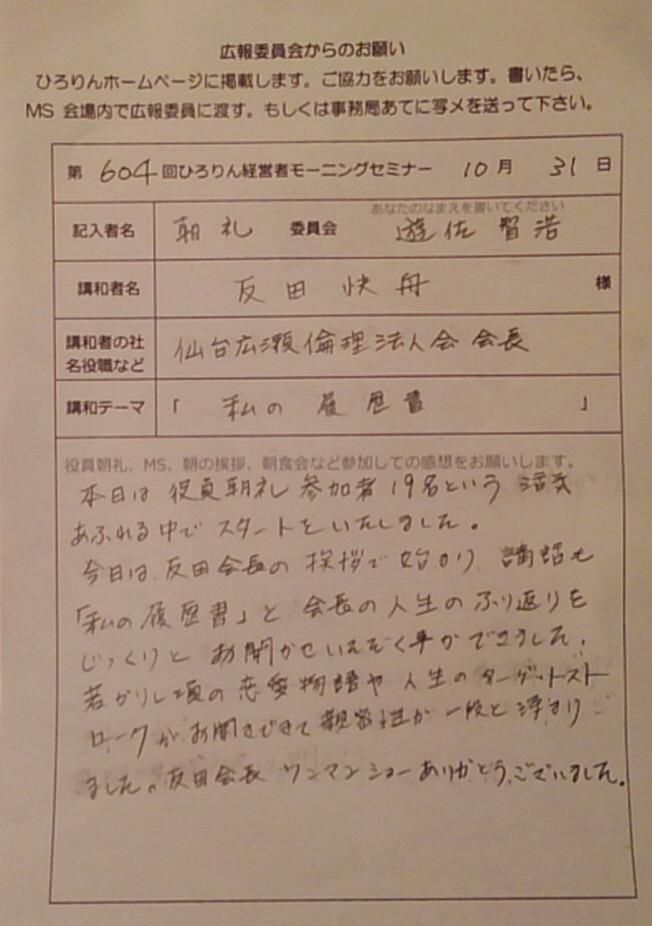 広報委員会からのお願い
ひろりんホームページに掲載します。ご協力をお願いします。書いたら、
MS 会場内で広報委員に渡す。もしくは事務局あてに写メを送って下さい。
第 604 回ひろりん経営者モーニングセミナー 10 月 31 日
あなたのなまえを書いてください
記入者名 朝礼 委員会 遊佐 智浩
講和者名 反田 快舟 様
講和者の社
名役職など 仙台広瀬倫理法人会 会長
講和テーマ 「 私の 履歴書 」
役員朝礼、MS、朝の挨拶、朝食会など参加しての感想をお願いします。
本日は 役員朝礼 参加者 19名という 活気
あふれる中で スタートをいたしました。
今日は、反田会長の 挨拶で始まり、講話も
「私の履歴書」と 会長の人生のふり返りを
じっくりと お聞かせいただく事ができました。
若かりし頃の恋愛物語や 人生のターゲットスト
ロークが お聞きできて 親密性が 一段と深まり
ました。反田会長 ワンマンショーありがとうございました。